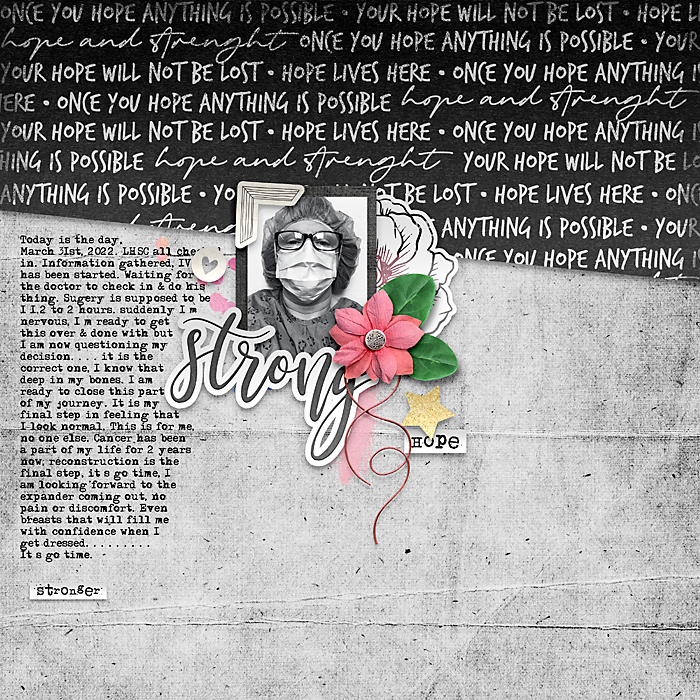 ONCE YOU HOPE ANYTHING IS POSSIBLE • YOUR HOPE WILL NOT BE LOST • HOPE LI
hope and strenght ONCE YOU HOPE ANYTHING IS POSSIBLE •
YOUR HOPE WILL NOT BE LOST • HOPE LIVES HERE • ONCE YOU HOPE ANYTHING I
ERE • ONCE YOU HOPE ANYTHING IS POSSIBLE hope and strenght
YOUR HOPE WILL NOT BE LOST • HOPE LIVES HERE • ONCE YOU HOPE ANYTHING I
HING IS POSSIBLE hope and strenght YOUR HOPE WILL NOT BE L
ANYTHING IS POSSIBLE • YO T BE LOST • HOPE LIVES HERE • ON
hope ANYTHING IS POSSIBLE •
VES HERE • ONCE YO
Today is the day.
March 31st, 2022. LHSC all check
in. Information gathered, IV
has been started. Waiting for
the doctor to check in & do his
thing. Sugery is supposed to be
1 1.2 to 2 hours. suddenly I m
nervous, I m ready to get
this over & done with but
I am now questioning my
decision. . . . it is the
correct one, I know that
deep in my bones. I am
ready to close this part
of my journey. It is my
final step in feeling that
I look normal. This is for me,
no one else. Cancer has been
a part of my life for 2 years
now, reconstruction is the
final step, it s go time, I
am looking forward to the
expander coming out, no
pain or discomfort. Even
breasts that will fill me
with confidence when I
get dressed. . . . . . . . .
It s go time.
strong
HOPE
stronger